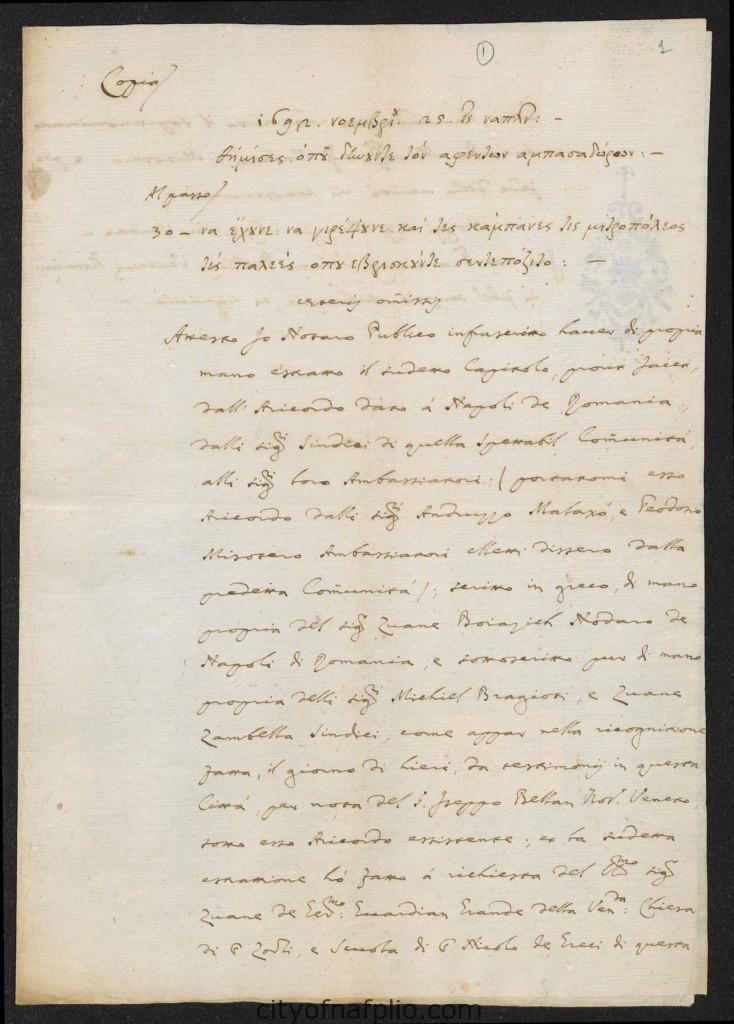 1
1
Copia
1692. νοεμβρι: 25. ἐς ναπλι: –
θήμισες ὁποῦ δίδουντε τὸν αφεντων αμπασαδόρων: –
Al passo
30 – να ἔχουνε να γιρέψουνε και τες κάμπανες τις μιτροπόλεος
τές παλεές οπου εβρισκουντε σεντεπόζιτο: –
ceteris omissis
Attesto Io Nodaro Publico infrascritto hauer di propria
mano estratto il sudetto Capitolo, prout jacet,
dall' Aricordo dato á Napoli de Romania,
dalli sigri Sindici di quella Spettabil Comunità,
alli sigri loro Ambassiatori; / portatomi esso
Aricordo dalli sigri Andruzzo Malaxó, e Teodosio
Misotero Ambassiatori eletti dissero dalla
predetta Comunità /; scritto in greco, di mano
propria del sigr Zuane Boiazich Nodaro de
Napoli di Romania, e sottoscritto pur di mano
propria delli sigri Michiel Bragioti, e Zuane
Zambella Sindici, come appar nella recognitione
fatta, il giorno di hieri, da testimonij in questa
Città, per nota del S. Iseppo Bellan Nod. Veneto,
sotto esso Aricordo essistente; et la sudetta
estrattione hó fatto á richiesta del sigr
Zuane de Guardian Grande della Venda: Chiesa
di S. Zorzi, e Scuola di S. Nicolo de Greci di questa
cityofnafplio.com